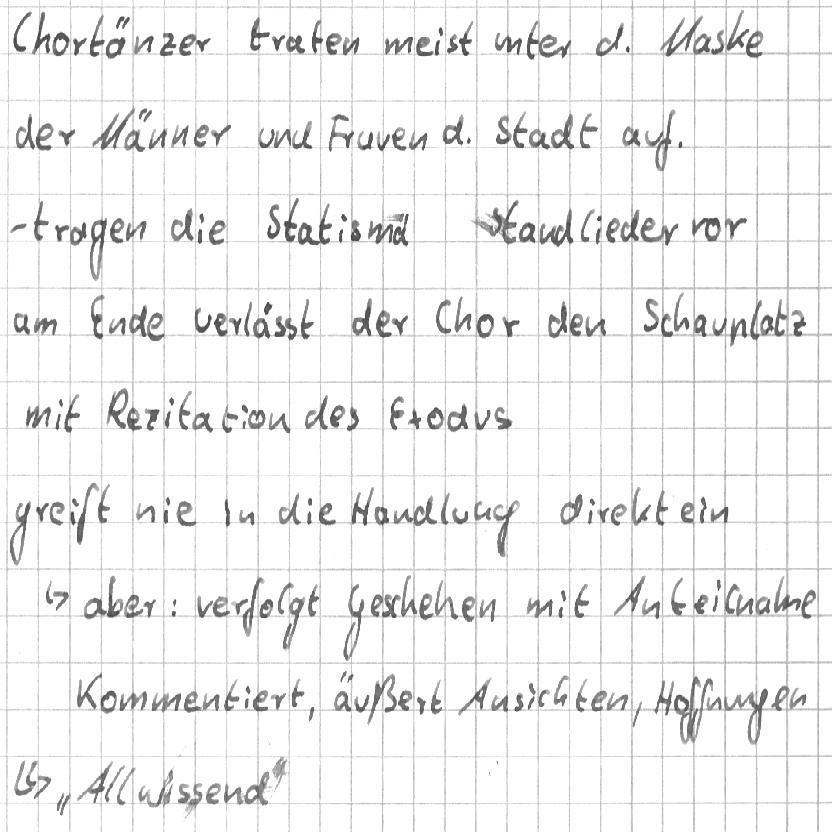 Chortänzer traten meist unter d. Maske
der Männer und Frauen d. Stadt auf.
-tragen die Statisma Standlieder vor
am Ende verlässt der Chor den Schauplatz
mit Rezitation des Exodus
greift nie in die Handlung direkt ein
↳ aber: verfolgt Geschehen mit Anteilnahme
Kommentiert, äußert Ansichten, Hoffnungen
↳ „Allwissend"